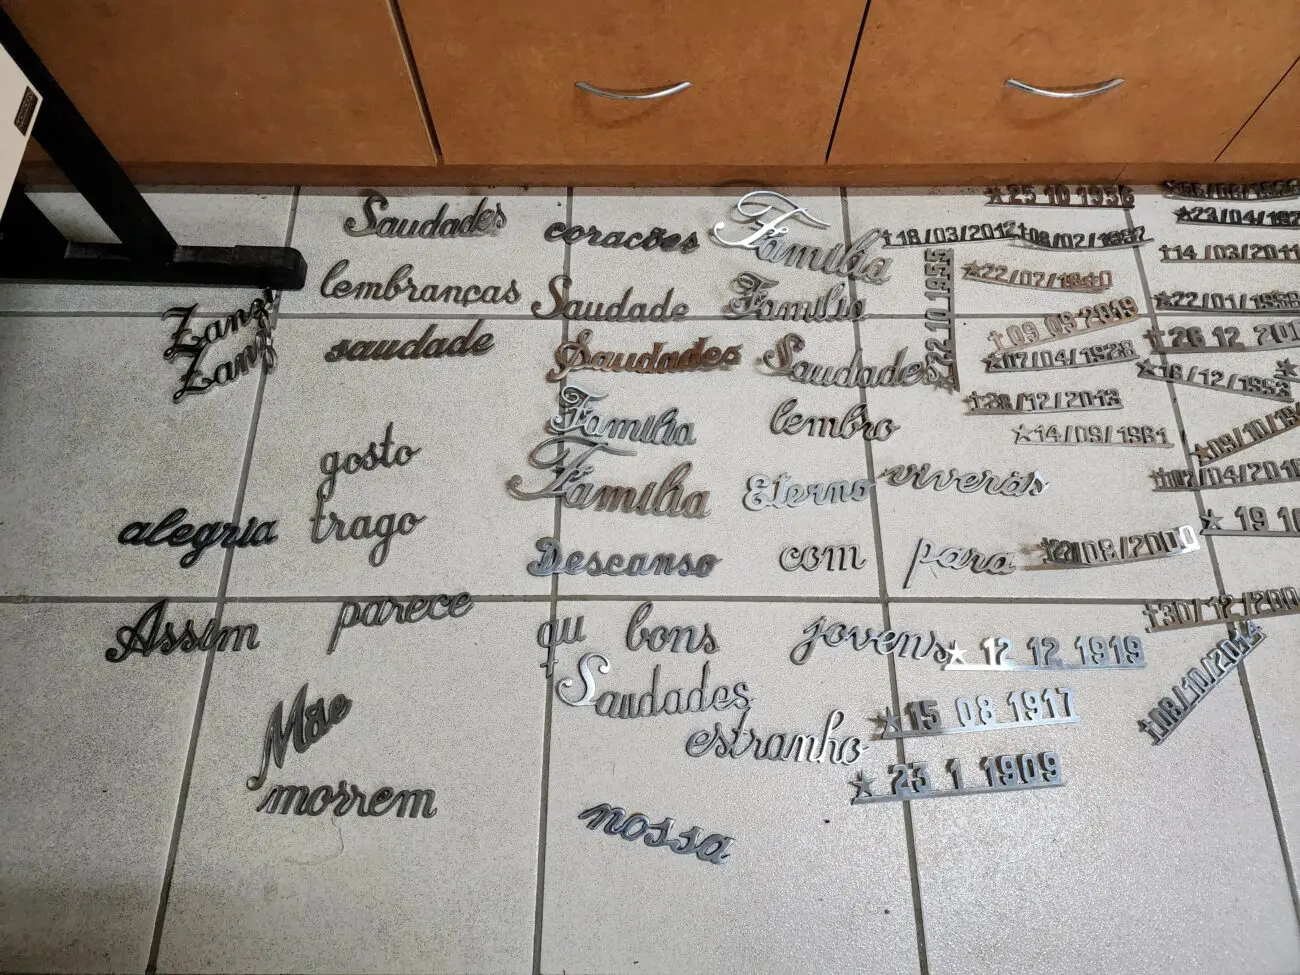 Saudades
corações
Família
lembranças
Saudade
Família
saudade
Saudades
Saudades
Família
lembro
gosto
Família
Eterno
viverás
alegria
trago
Descanso
com
para
Assim
parece
qu
bons
jovens
Saudades
Mãe
estranho
morrem
nossa
★25 10 1936
★23/04/192
★18/03/2012
†14/03/2011
22 10 1955
★22/01/1958
†09 09 2019
★07/04/1928
†26 12 200
★16/12/1953
†28/12/2013
★14/09/1961
★09/10/19
★19 10
†30/12/200
★12 12 1919
†08/10/2014
★15 08 1917
★23 1 1909